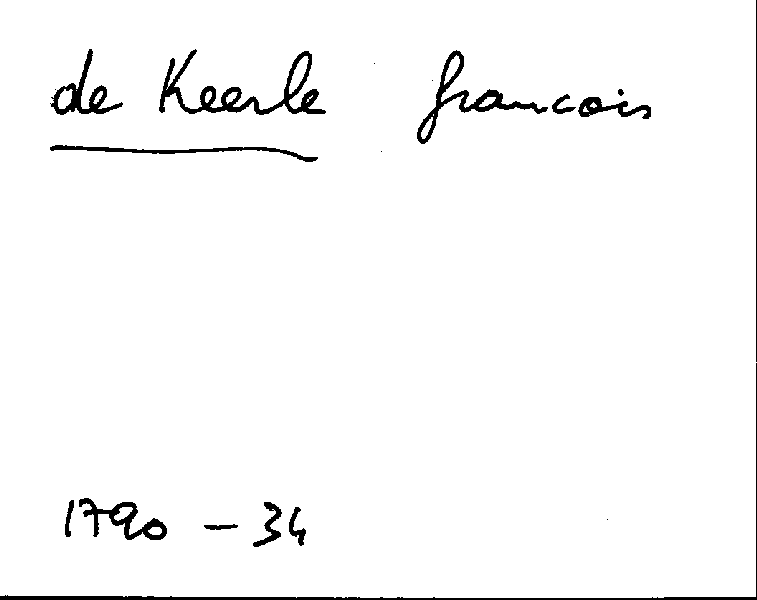 de Keerle francois
1790 - 34